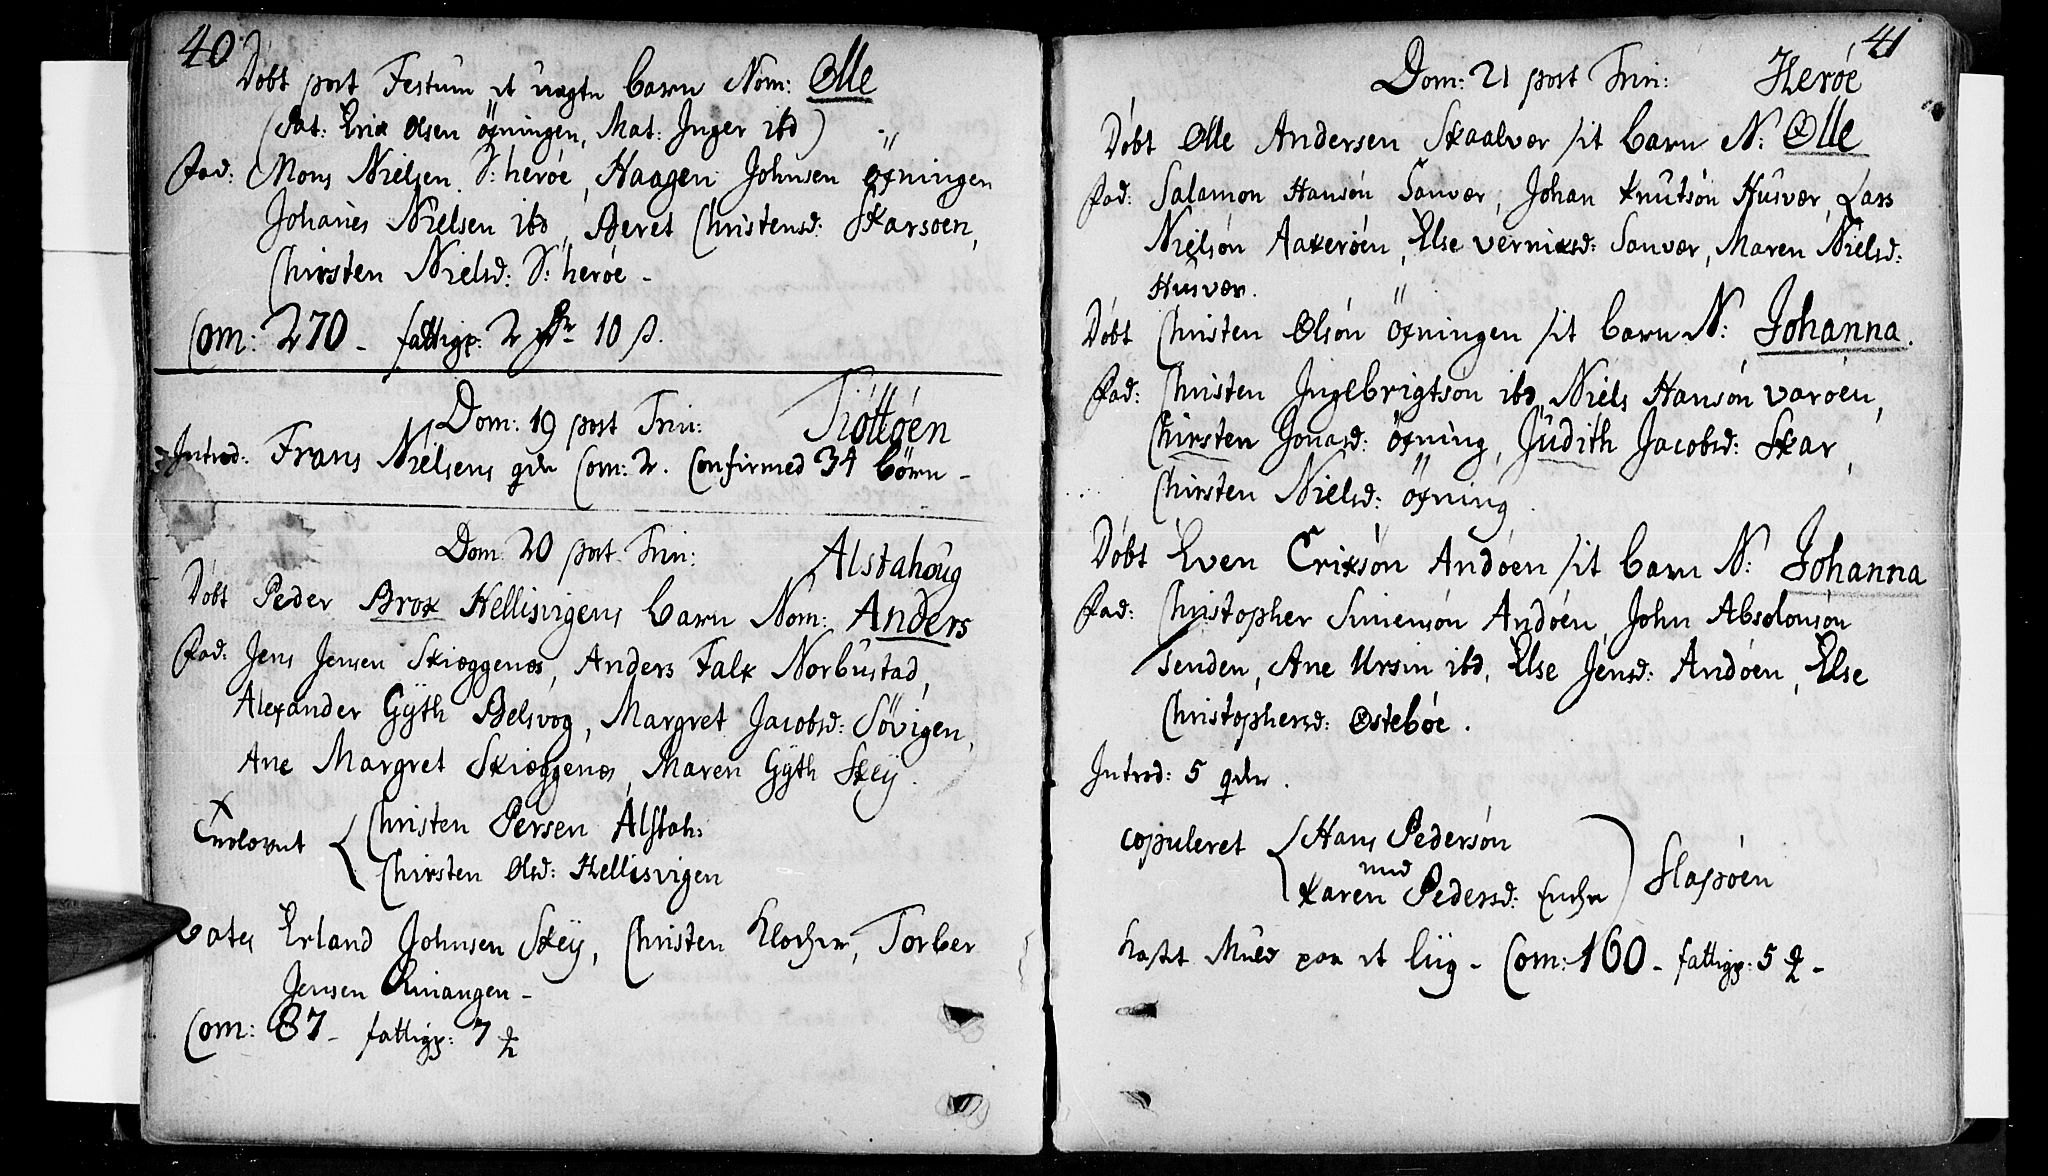 40
Døbt post Festum et uægte barn Nom: Olle
(Pat: Erik Olsen öxningen, Mat: Inger ibd)
Fad: Mons Nielsen S: herøe, Haagen Johnsen öxningen
Johanes Nielsen ibd, Beret Christensd: Skarsoen,
Chirsten Nielsd: S: herøe -
Com: 270 - fattigp: 2 10 s.
Dom: 19 post Trin: Tiøttøen
Introd: Frans Nielsens qde Com: 2. Confirmed 34 börn -
Dom: 20 post Trin: Alstahoug
Døbt Peder Brox Hellisvigens barn Nom: Anders
Fad: Jens Jensen Skiæggenæs, Anders Falk Norbustad,
Alexander Gÿth Belsvog, Margret Jacobsd: Søvigen,
Ane Margret Skiæggenæs, Maren Gÿth Skeÿ.
Trolovet { Christen Persen Alstah:
Chirsten Olsd: Hellisvigen
Erland Johnsen Skeÿ, Christen Klocher, Torber
Jensen
Com: 87 - fattigp: 7
41
Dom: 21 post Trin: Herøe
Døbt Olle Andersen Skaalvær sit barn N: Olle
Fad: Salamon Hansøn Sanvær, Johan Knutsøn Husvær, Lars
Nielsøn Aakerøen, Else verniksd: Sanvær, Maren Nielsd:
Husvær.
Døbt Christen Olsøn öxningen sit barn N: Johanna.
Fad: Christen Ingebrigtsøn ibd, Niels Hansøn varøen,
Chirsten Jonasd: öxning, Judith Jacobsd: Skar,
Chirsten Nielsd: öxning.
Døbt Even Erixsøn Andøen sit barn N: Johanna
Fad: Christopher Simensøn Andøen, John Absolonsøn
senden, Ane Ursin ibd, Else Jensd: Andøen, Else
Christophersd: Østebøe.
Introd: 5 qdr.
copuleret { Hans Pedersøn
med
Karen Pedersd: Enche ) Slapøen
Kastet Muld paa et liig - Com: 160 - fattigp: 5 -